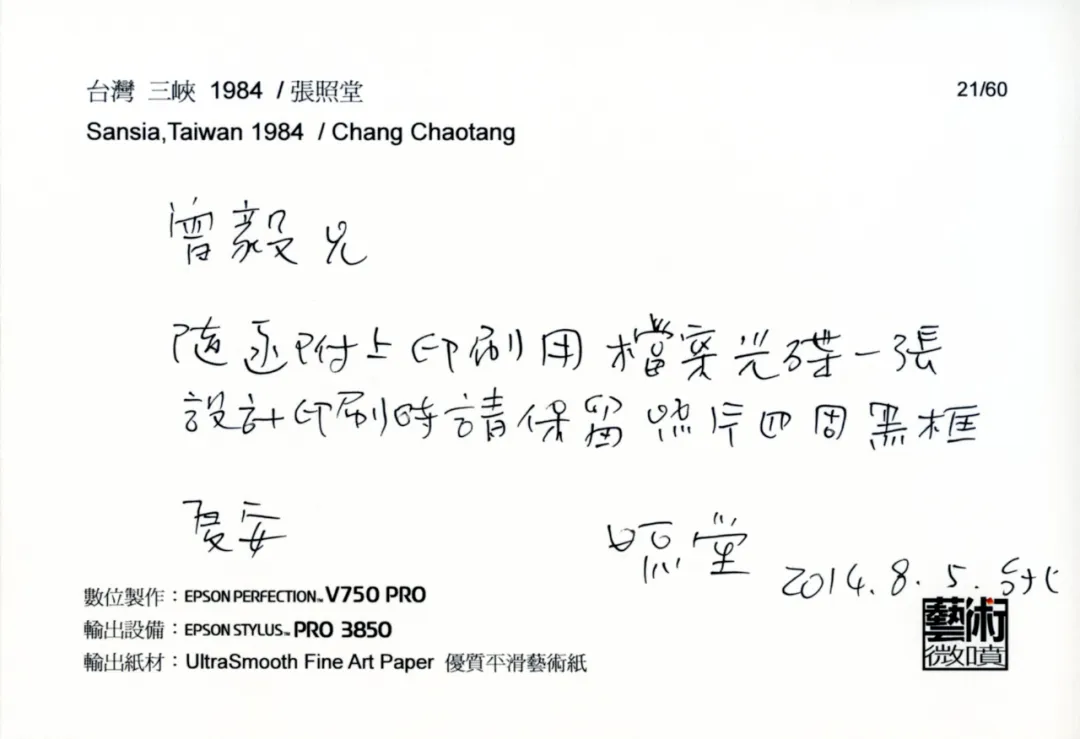 台灣 三峽 1984 / 張照堂
21/60
Sansia,Taiwan 1984 / Chang Chaotang
曾毅兄
隨函附上印刷用檔案光碟一張
設計印刷時請保留照片四周黑框
夏安
照堂
2014.8.5.台北
數位製作：EPSON PERFECTION™ V750 PRO
輸出設備：EPSON STYLUS™ PRO 3850
輸出紙材：UltraSmooth Fine Art Paper 優質平滑藝術紙
藝術
微噴